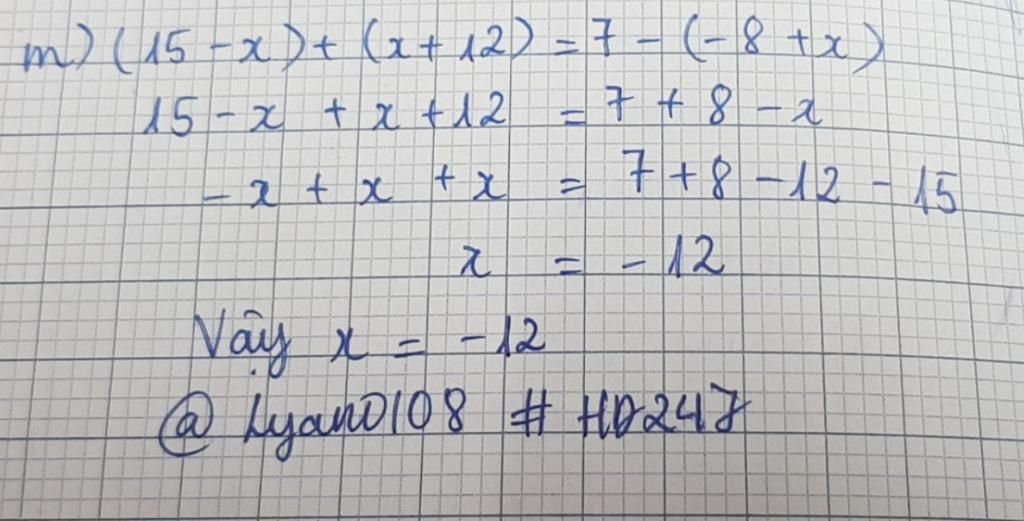 m) (15 - x) + (x + 12) = 7 - (-8 + x)
15 - x + x + 12 = 7 + 8 - x
- x + x + x = 7 + 8 - 12 - 15
x = - 12
Vậy x = - 12
@ Lyan0108 # HD247